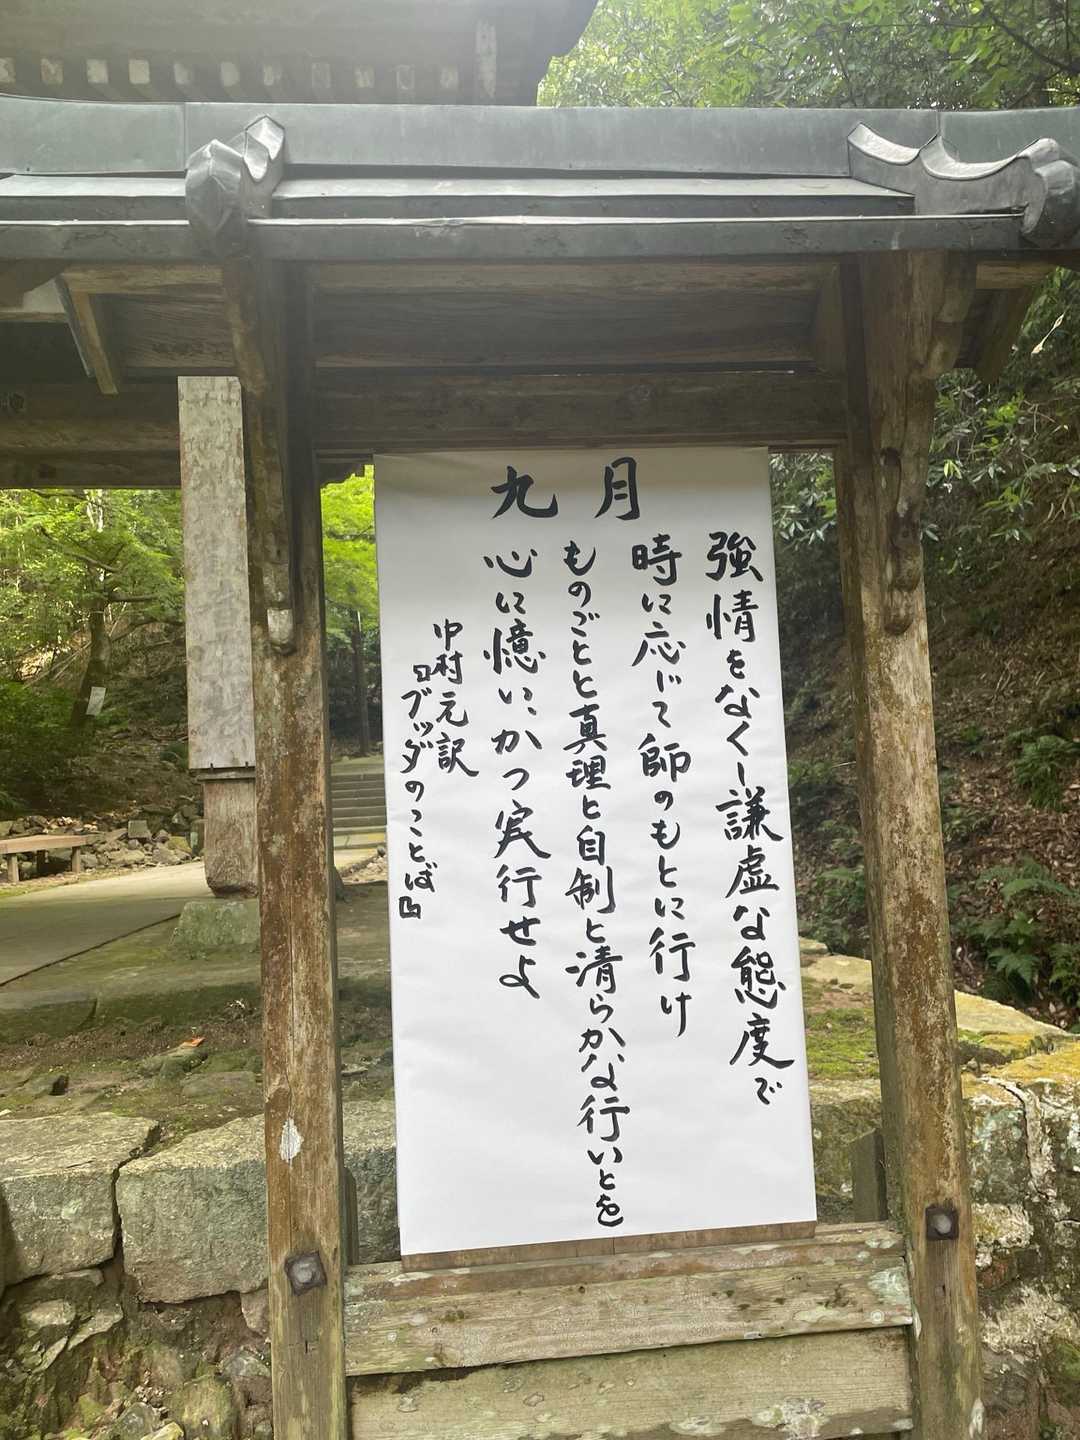 九月
強情をなくし謙虚な態度で
時に応じて師のもとに行け
ものごとと真理と自制と清らかな行いとを
心に憶い、かつ実行せよ
中村元訳
『ブッダのことば』